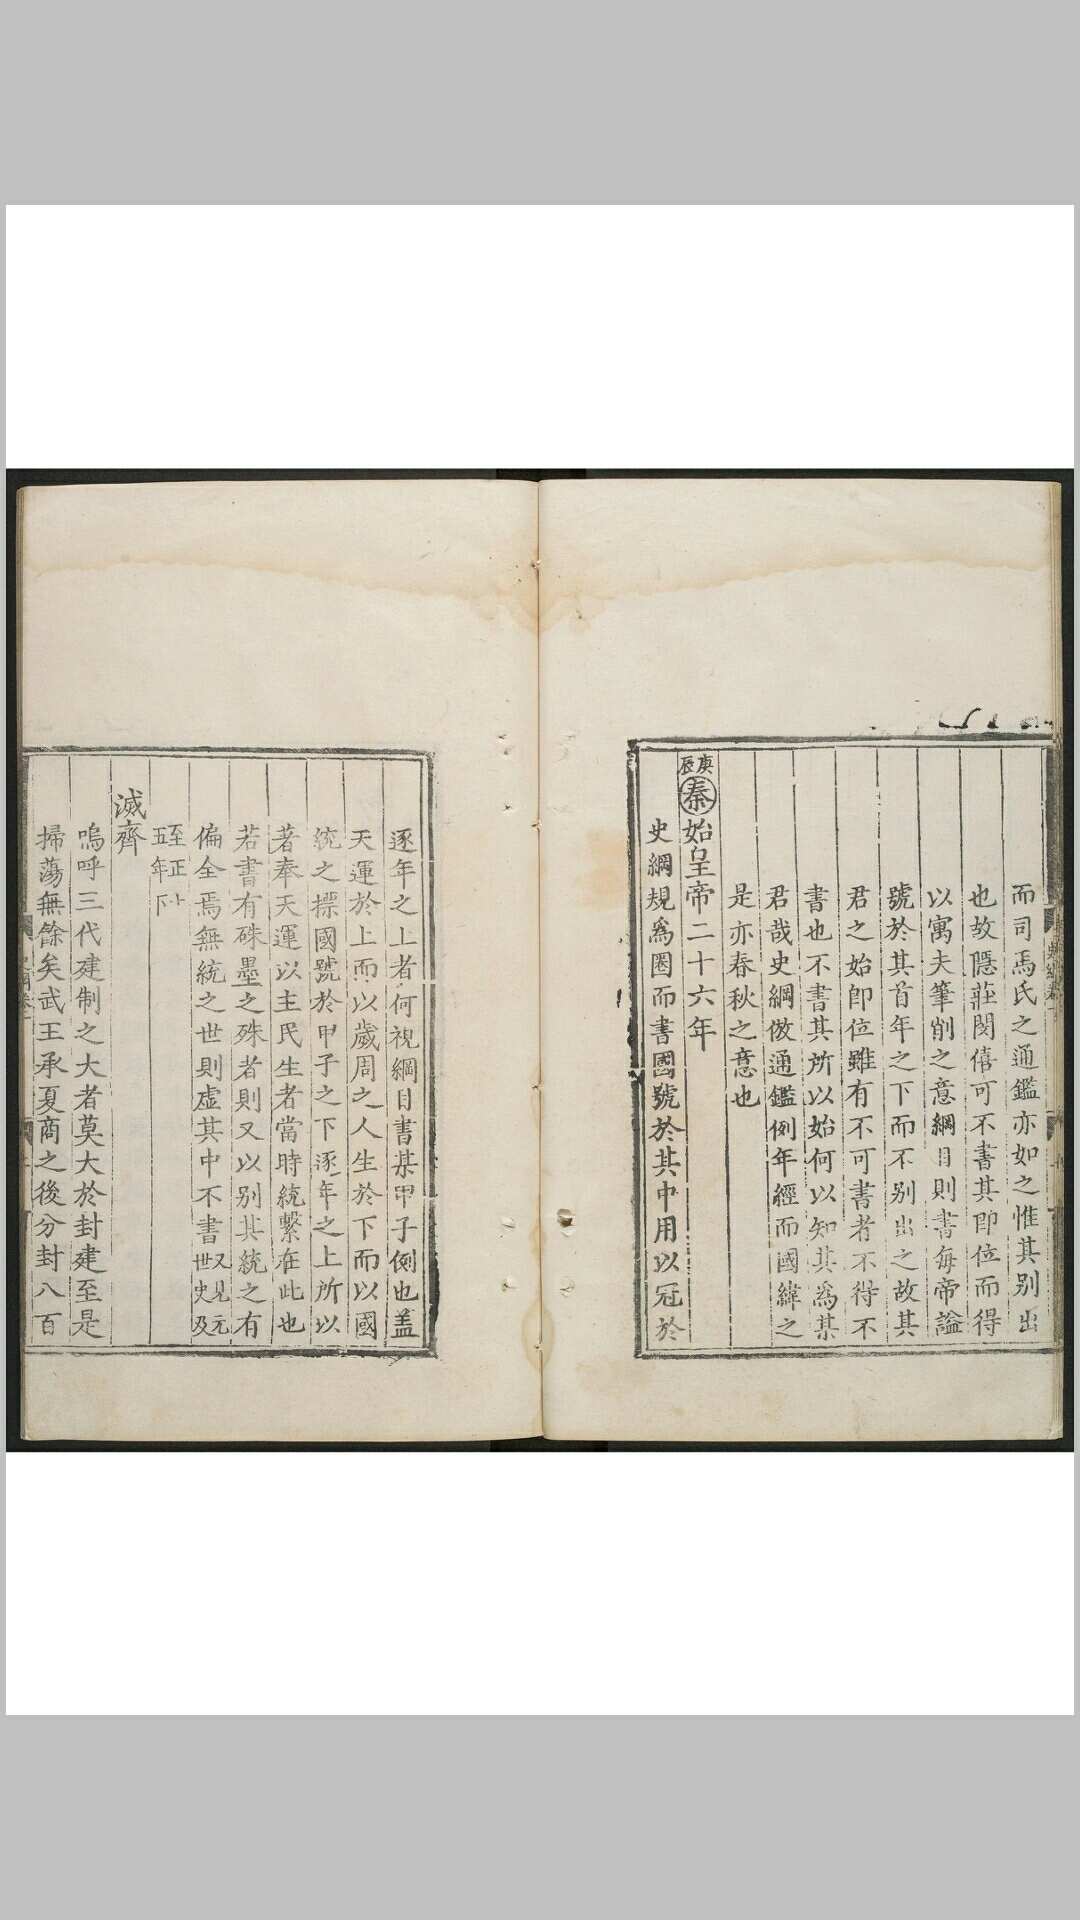 而司馬氏之通鑑亦如之惟其别出
也故隱莊閔僖可不書其即位而得
以寓夫筆削之意綱目則書每帝諡
號於其首年之下而不别出之故其
君之始即位雖有不可書者不得不
書也不書其所以始何以知其為某
君哉史綱倣通鑑例年經而國緯之
是亦春秋之意也
庚辰秦始皇帝二十六年
史綱規為圏而書國號於其中用以冠於
逐年之上者何視綱目書某甲子例也盖
天運於上而以歲周之人生於下而以國
統之摽國號於甲子之下逐年之上所以
著奉天運以主民生者當時統繫在此也
若書有硃墨之殊者則又以别其統之有
偏全焉無統之世則虚其中不書又見元世史及
至正五年下
滅齊
嗚呼三代建制之大者莫大於封建至是
掃蕩無餘矣武王承夏商之後分封八百